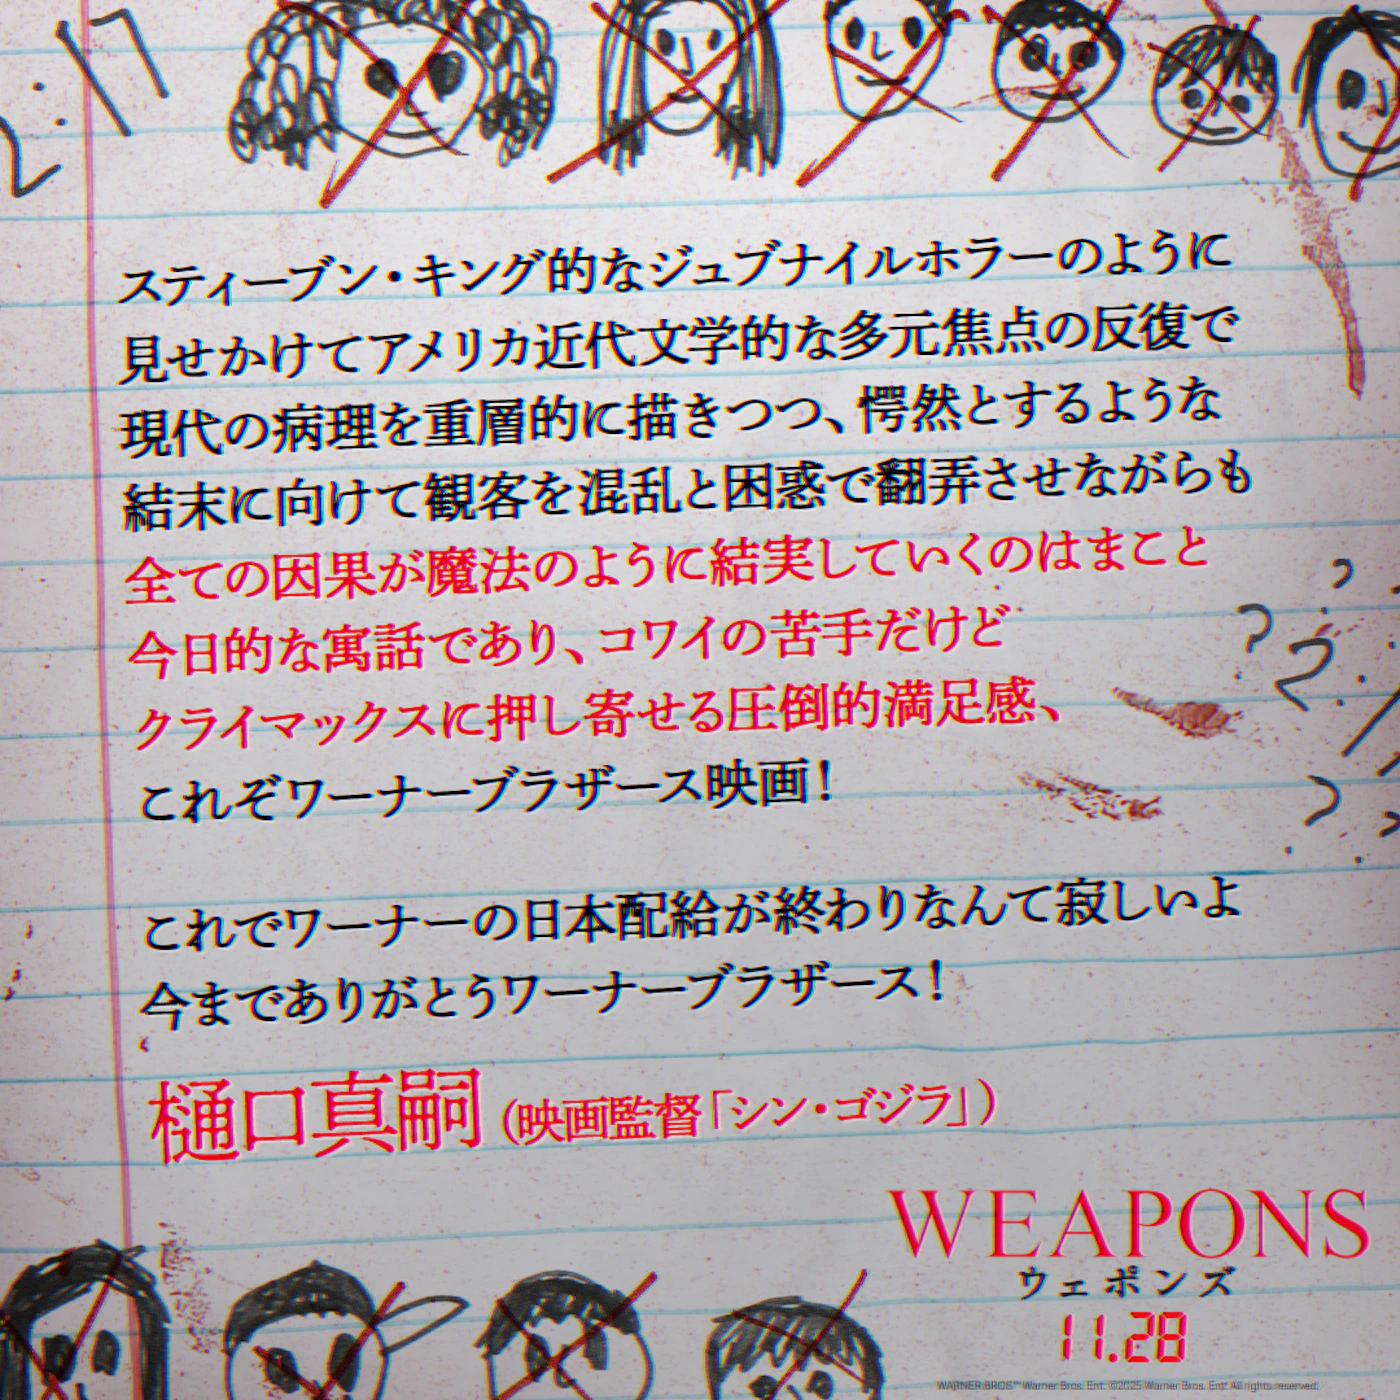 2:17
スティーブン・キング的なジュブナイルホラーのように
見せかけてアメリカ近代文学的な多元焦点の反復で
現代の病理を重層的に描きつつ、愕然とするような
結末に向けて観客を混乱と困惑で翻弄させながらも
全ての因果が魔法のように結実していくのはまこと
今日的な寓話であり、コワイの苦手だけど
クライマックスに押し寄せる圧倒的満足感、
これぞワーナーブラザース映画！
これでワーナーの日本配給が終わりなんて寂しいよ
今までありがとうワーナーブラザース！
樋口真嗣（映画監督「シン・ゴジラ」）
WEAPONS
ウェポンズ
11.28
WARNER BROS™ Warner Bros. Ent. ©2025 Warner Bros. Ent. All rights reserved.